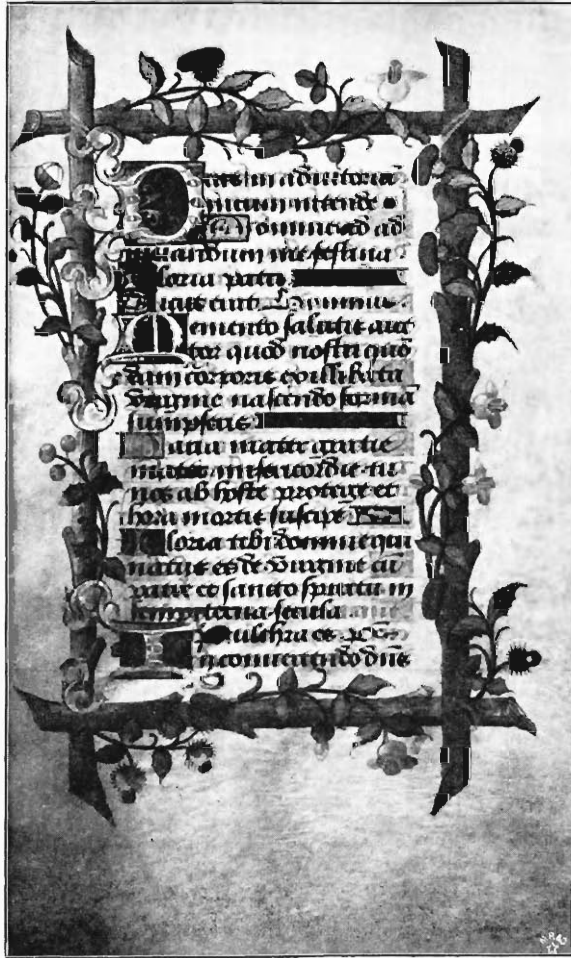 Deus in adiutoriū
meum intende
Domine ad ad
iuuandum me festina
Gloria patri
Sicut erat
Memento salutis auc
tor quod nostri quō
dam corporis ex illibata
Virgine nascendo formā
sumpseris
Maria mater gratie
mater misericordie tu
nos ab hoste protege et
hora mortis suscipe
Gloria tibi domine qui
natus es de Virgine cū
patre et sancto spiritu in
sempiterna secula
pulchra es
In conuertendo dn̄s